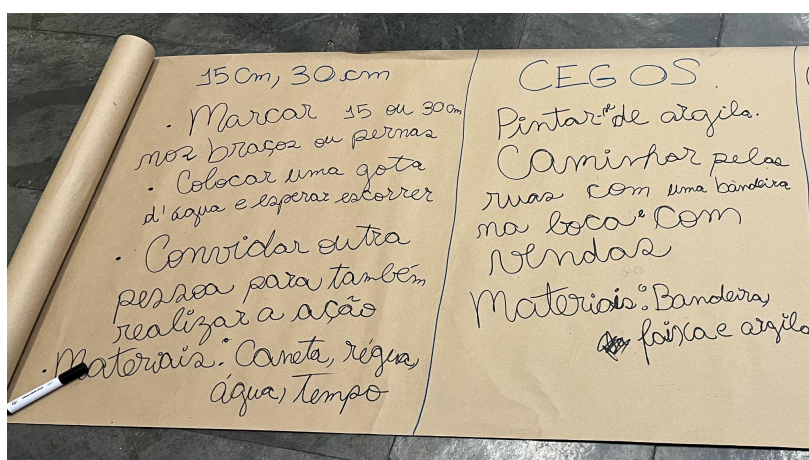 15 cm, 30 cm
· Marcar 15 ou 30 cm
nos braços ou pernas
· Colocar uma gota
d'água e esperar escorrer
· Convidar outra
pessoa para também
realizar a ação
· Materiais: Caneta, régua,
água, Tempo
CEGOS
Pintar-se de argila.
Caminhar pelas
ruas com uma bandeira
na boca e com
vendas
Materiais: Bandeira,
faixa e argila